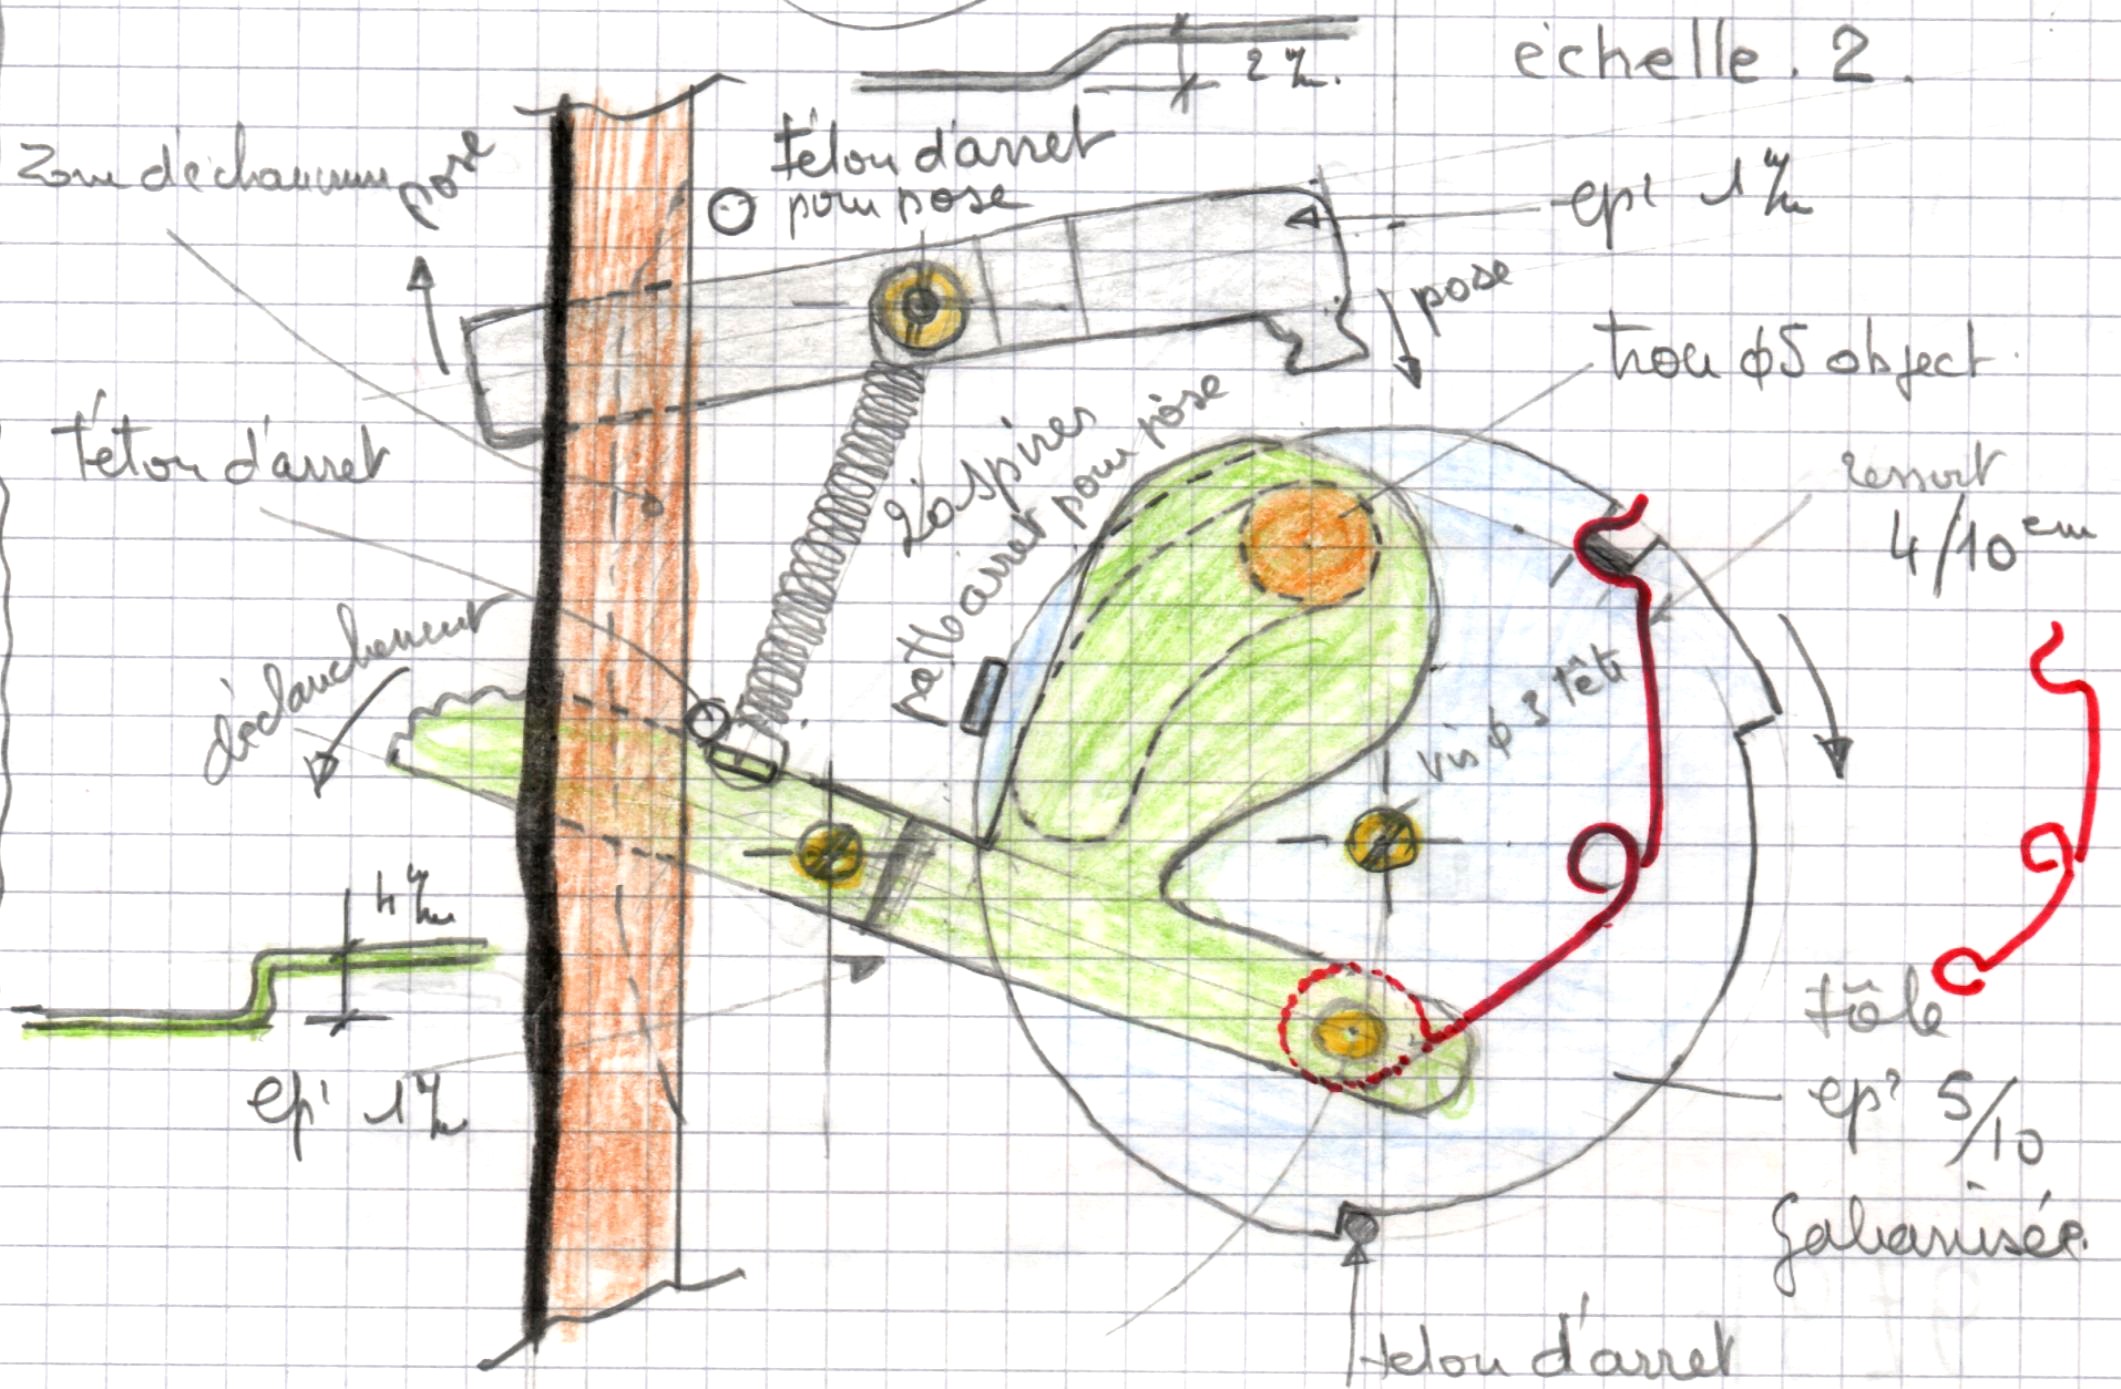 échelle. 2.
2 m/m.
Zone déchaumm
pose
Tétou d'arret
pour pose
epr 1 m/m
pose
trou φ5 object.
Tétou d'arret
20 spires
patte arret pour pose
ressort
4/10 em
déclanchement
vis φ 3 tête
4 m/m
epr 1 m/m
tôle
epr 5/10
Galvanisée.
tetou d'arret